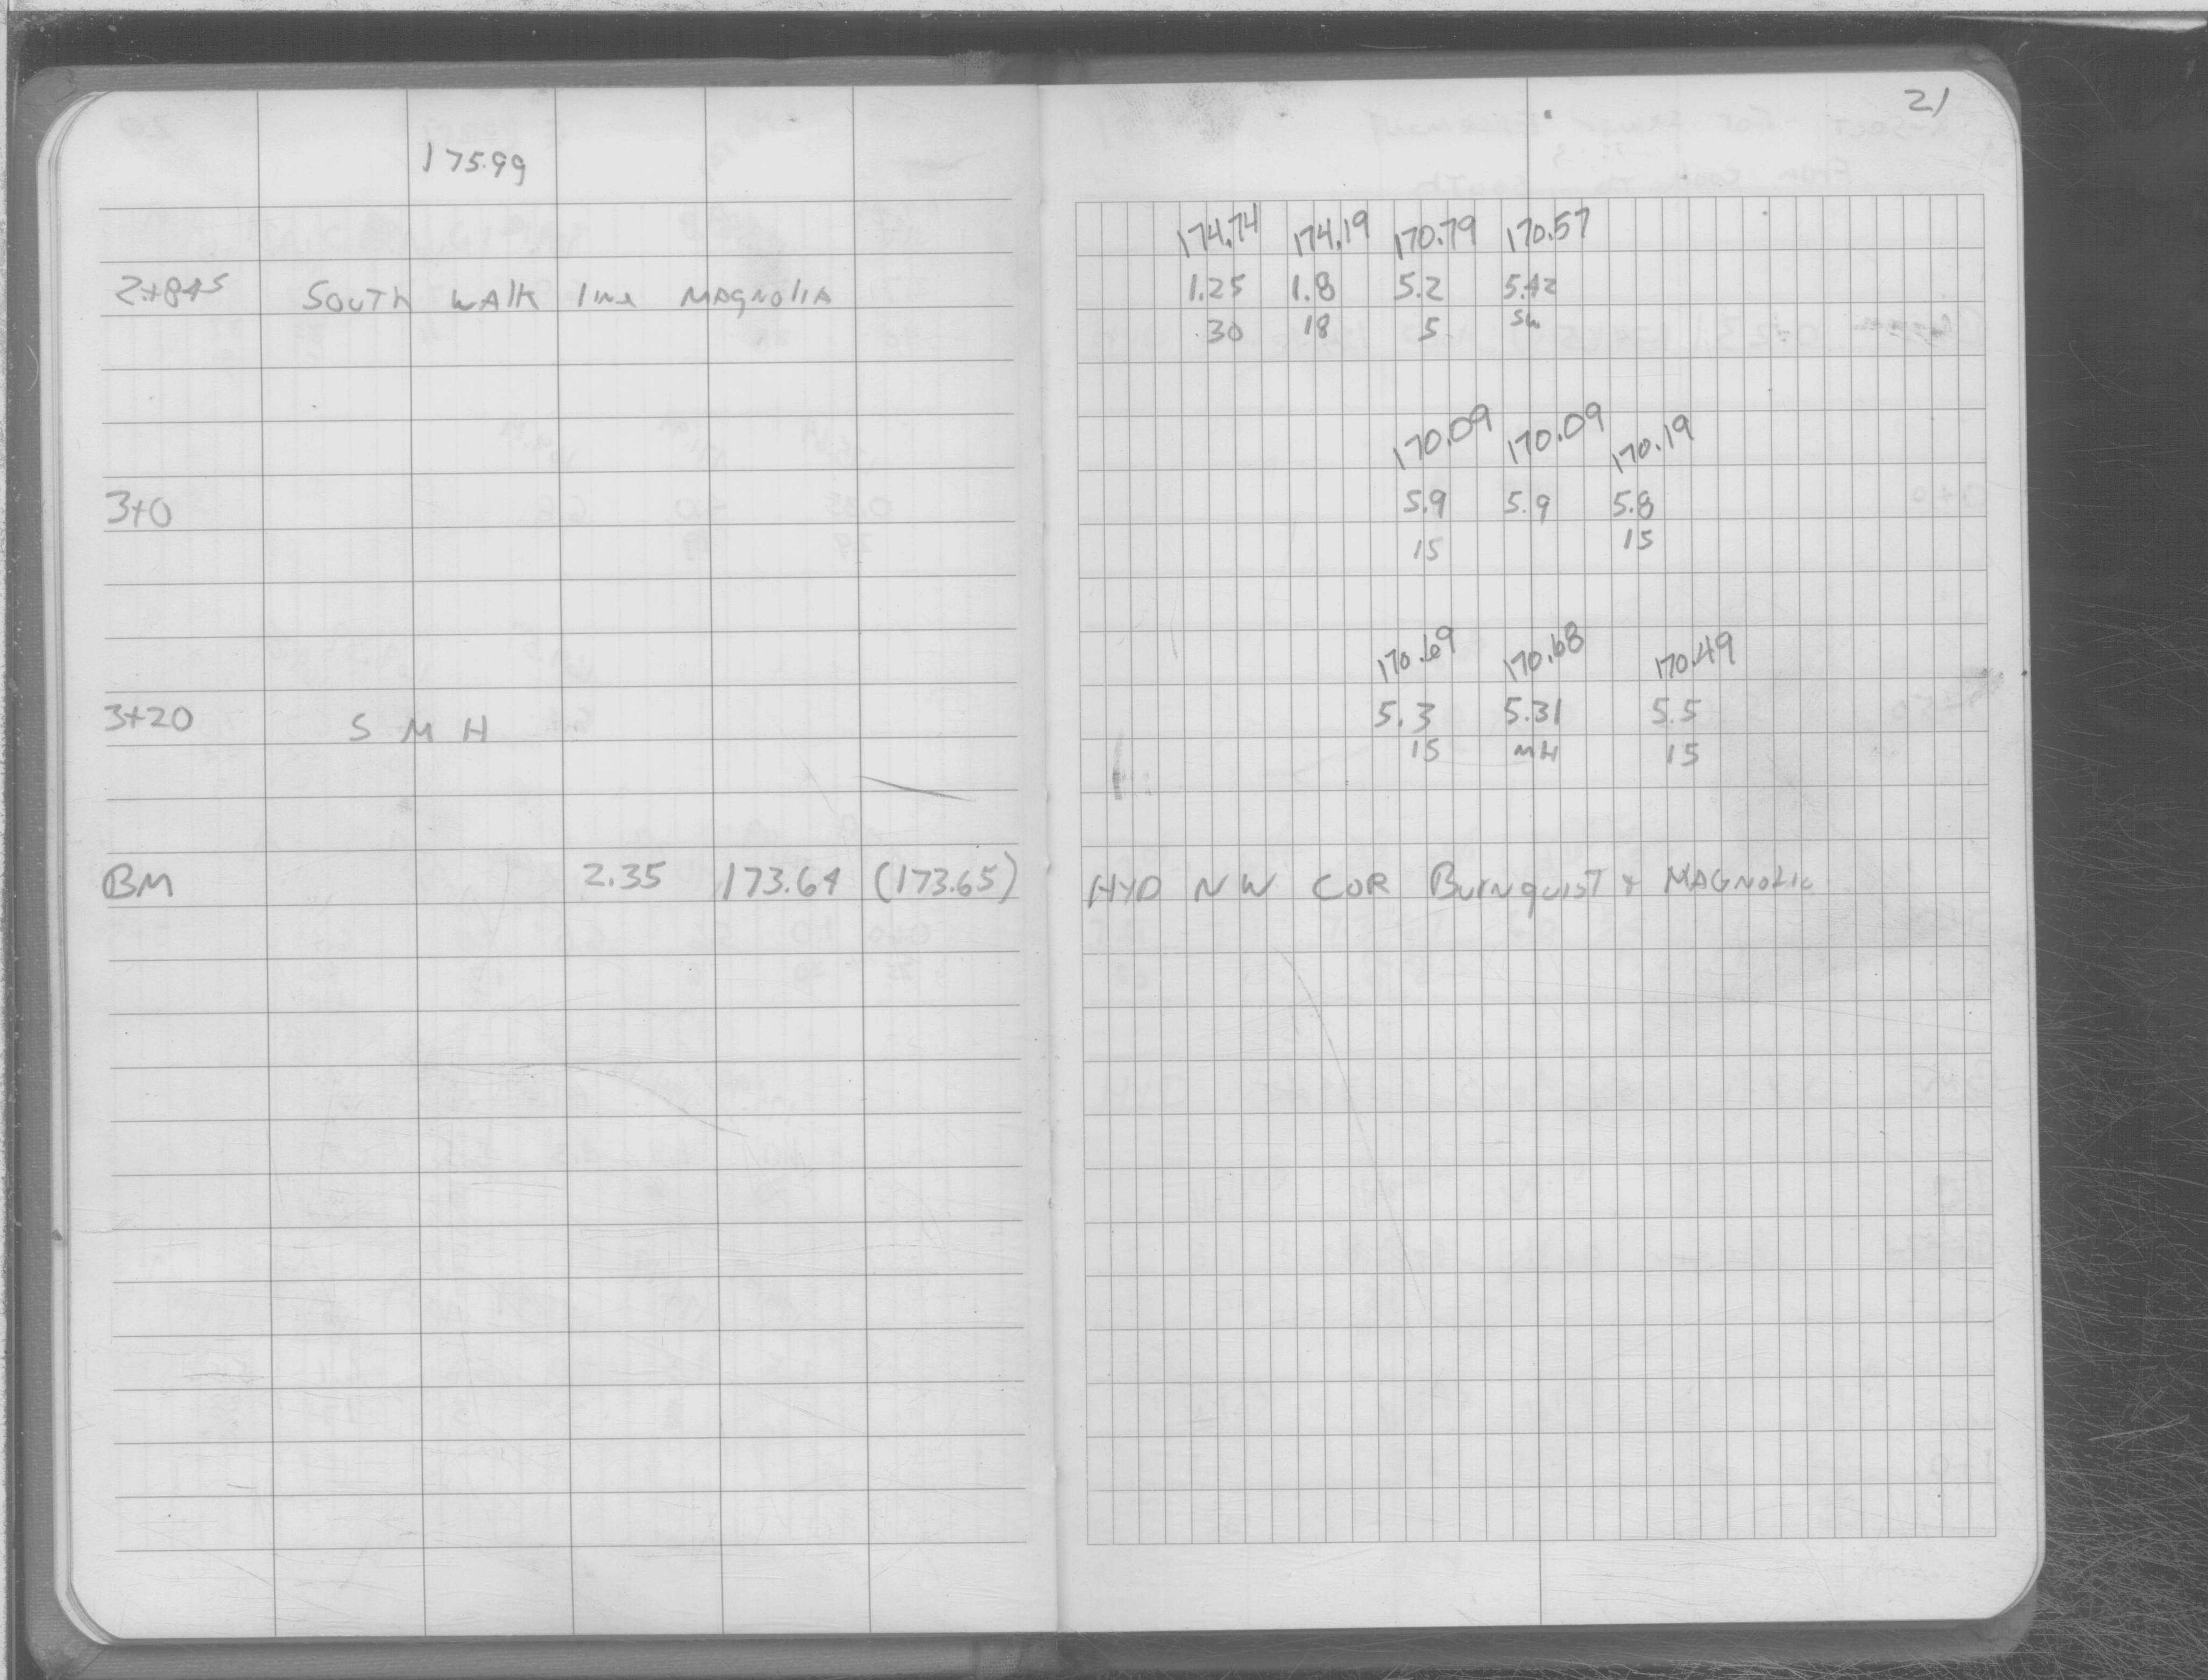 21
175.99
174.74 174.19 170.79 170.57
2+845 South walk line Magnolia 1.25 1.8 5.2 5.42
30 18 5 SW
170.09 170.09 170.19
3+0 5.9 5.9 5.8
15 15
170.69 170.68 170.49
3+20 S M H 5.3 5.31 5.5
15 MH 15
BM 2.35 173.64 (173.65) HYD NW COR Burnquist + Magnolia